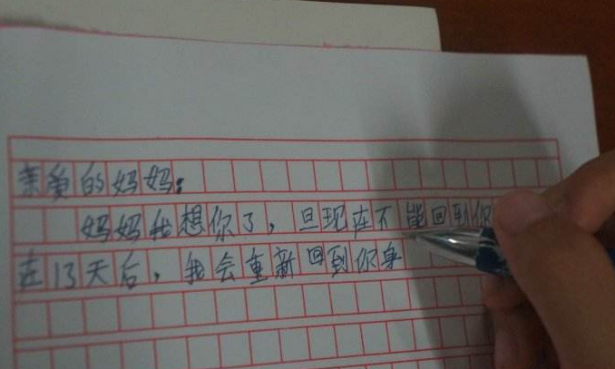 亲爱的妈妈：
妈妈我想你了，旦现在不能回到你
在13天后，我会重新回到你身